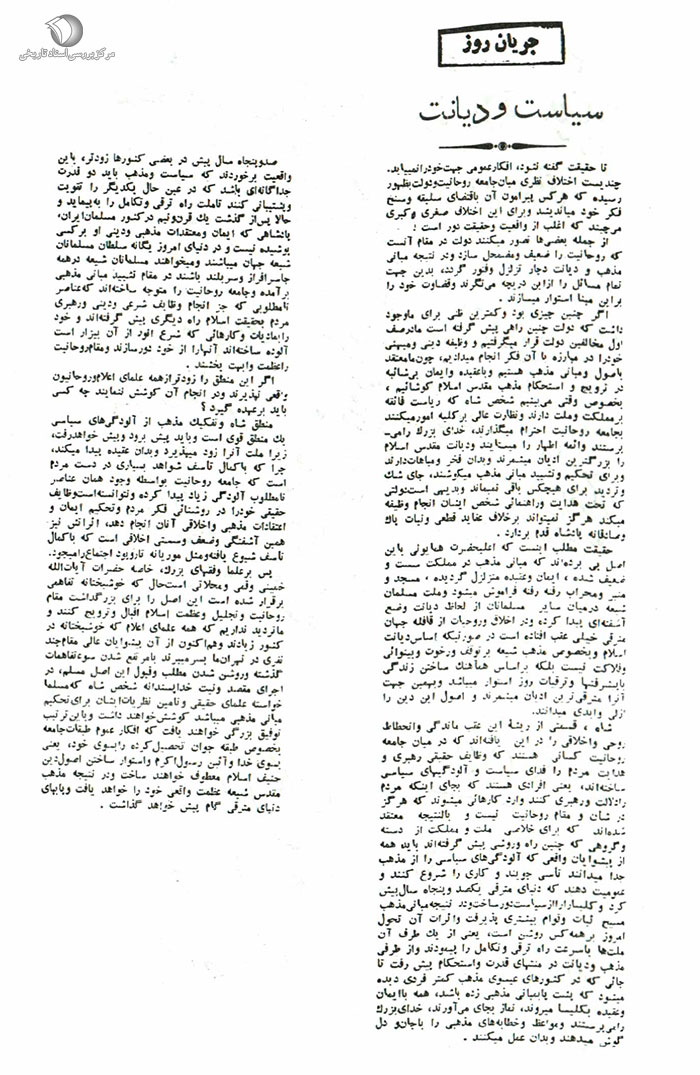 مرکز بررسی اسناد تاریخی
جریان روز
سیاست و دیانت
تا حقیقت گفته نشود، افکار عمومی جهت خود را نمییابد.
چندیست اختلاف نظری میان جامعه روحانیت و دولت بظهور
رسیده که هر کس پیرامون آن باقتضای سلیقه و سنخ
فکر خود میاندیشد و برای این اختلاف صغری و کبری
می‌چیند که اغلب از واقعیت و حقیقت دور است :
از جمله بعضی‌ها تصور میکنند دولت در مقام آنست
که روحانیت را ضعیف و مضمحل سازد و در نتیجه مبانی
مذهب و دیانت دچار تزلزل و فتور گردد، بدین جهت
تمام مسائل را از این دریچه می‌نگرند و قضاوت خود را
بر این مبنا استوار میسازند .
اگر چنین چیزی بود و کمترین ظنی برای ما وجود
داشت که دولت چنین راهی پیش گرفته است ما در صف
اول مخالفین دولت قرار میگرفتیم و وظیفه دینی و میهنی
خود را در مبارزه با آن فکر انجام میدادیم، چون ما معتقد
باصول و مبانی مذهب هستیم و با عقیده و ایمان بی‌شائبه
در ترویج و استحکام مذهب مقدس اسلام کوشائیم ،
بخصوص وقتی می‌بینیم شخص شاه که ریاست فائقه
بر مملکت و ملت دارند و نظارت عالی بر کلیه امور میکنند
بجامعه روحانیت احترام میگذارند، خدای بزرگ را می‌-
پرستند و ائمه اطهار را میستایند و دیانت مقدس اسلام
را بزرگترین ادیان میشمرند و بدان فخر و مباهات دارند
و برای تحکیم و تشیید مبانی مذهب میکوشند، جای شک
و تردید برای هیچکس باقی نمیماند و بدیهی است دولتی
که تحت هدایت و راهنمائی شخص ایشان انجام وظیفه
میکند هرگز نمیتواند برخلاف عقاید قطعی و نیات پاک
و صادقانه پادشاه قدم بردارد .
حقیقت مطلب اینست که اعلیحضرت همایونی باین
اصل پی برده‌اند که مبانی مذهب در مملکت سست و
ضعیف شده ، ایمان و عقیده متزلزل گردیده ، مسجد و
منبر و محراب رفته رفته فراموش میشود و ملت مسلمان
شیعه در میان سایر مسلمانان از لحاظ دیانت وضع
آشفته‌ای پیدا کرده و در اخلاق و روحیات از قافله جهان
مترقی خیلی عقب افتاده است در صورتیکه اساس دیانت
اسلام و بخصوص مذهب شیعه بر توقف و رخوت و بینوائی
و فلاکت نیست بلکه بر اساس هماهنگ ساختن زندگی
با پیشرفتها و ترقیات روز استوار میباشد و بهمین جهت
آنرا مترقی‌ترین ادیان میشمرند و اصول این دین را
ازلی و ابدی میدانند.
شاه ، قسمتی از ریشهٔ این عقب ماندگی و انحطاط
روحی و اخلاقی را در این یافته‌اند که در میان جامعه
روحانیت کسانی هستند که وظایف حقیقی رهبری و
هدایت مردم را فدای سیاست و آلودگیهای سیاسی
ساخته‌اند، یعنی افرادی هستند که بجای اینکه مردم
را دلالت و رهبری کنند وارد کارهائی میشوند که هرگز
در شأن و مقام روحانیت نیست و بالنتیجه معتقد
شده‌اند که برای خلاصی ملت و مملکت از دسته
و گروهی که چنین راه و روشی پیش گرفته‌اند باید همه
از پیشوایان واقعی که آلودگی‌های سیاسی را از مذهب
جدا میدانند تأسی جویند و کاری را شروع کنند و
عمومیت دهند که دنیای مترقی یکصد و پنجاه سال پیش
کرد و کلیسا را از سیاست دور ساخت و در نتیجه مبانی مذهب
مسیح ثبات و قوام بیشتری پذیرفت و اثرات آن تحول
امروز بر همه کس روشن است، یعنی از یک طرف آن
ملت‌ها با سرعت راه ترقی و تکامل را پیمودند و از طرفی
مذهب و دیانت در منتهای قدرت و استحکام پیش رفت تا
جائی که در کشورهای عیسوی مذهب کمتر فردی دیده
میشود که پشت پا بمبانی مذهبی زده باشد، همه با ایمان
و عقیده بکلیسا میروند، نماز بجای می‌آورند، خدای بزرگ
را می‌پرستند و مواعظ و خطابه‌های مذهبی را با جان و دل
گوش میدهند و بدان عمل میکنند .
صد و پنجاه سال پیش در بعضی کشورها زودتر، باین
واقعیت برخوردند که سیاست و مذهب باید دو قدرت
جداگانه‌ای باشد که در عین حال یکدیگر را تقویت
و پشتیبانی کنند تا ملت راه ترقی و تکامل را به پیماید و
حالا پس از گذشت یک قرن و نیم در کشور مسلمان ایران،
پادشاهی که ایمان و معتقدات مذهبی و دینی او بر کسی
پوشیده نیست و در دنیای امروز یگانه سلطان مسلمانان
شیعه جهان میباشند و میخواهند مسلمانان شیعه در همه
جا سرافراز و سربلند باشند در مقام تشیید مبانی مذهبی
برآمده و جامعه روحانیت را متوجه ساخته‌اند که عناصر
نامطلوبی که جز انجام وظایف شرعی و دینی و رهبری
مردم بحقیقت اسلام راه دیگری پیش گرفته‌اند و خود
را بمادیات و کارهائی که شرع انور از آن بیزار است
آلوده ساخته‌اند آنها را از خود دور سازند و مقام روحانیت
را عظمت و ابهت بخشند .
اگر این منطق را زودتر از همه علمای اعلام و روحانیون
واقعی نپذیرند و در انجام آن کوشش ننمایند چه کسی
باید بر عهده گیرد ؟
منطق شاه و تفکیک مذهب از آلودگی‌های سیاسی
یک منطق قوی است و باید پیش برود و پیش خواهد رفت،
زیرا ملت آنرا زود میپذیرد و بدان عقیده پیدا میکند،
چرا که با کمال تأسف شواهد بسیاری در دست مردم
است که جامعه روحانیت بواسطه وجود همان عناصر
نامطلوب آلودگی زیاد پیدا کرده و نتوانسته است وظایف
حقیقی خود را در روشنائی فکر مردم و تحکیم ایمان و
اعتقادات مذهبی و اخلاقی آنان انجام دهد، اثراتش نیز
همین آشفتگی و ضعف و سستی اخلاقی است که با کمال
تأسف شیوع یافته و مثل موریانه تار و پود اجتماع را میجود.
پس بر علما و فقهای بزرگ، خاصه حضرات آیات‌الله
خمینی و قمی و محلاتی است حال که خوشبختانه تفاهمی
برقرار شده است این اصل را برای بزرگداشت مقام
روحانیت و تجلیل و عظمت اسلام اقبال و ترویج کنند و
ما تردید نداریم که همه علمای اعلام که خوشبختانه در
کشور زیادند و هم‌اکنون از آن پیشوایان عالی مقام چند
نفری در تهران ما بسر میبرند با مرتفع شدن سوءتفاهمات
گذشته و روشن شدن مطلب و قبول این اصل مسلم، در
اجرای مقصد و نیت خداپسندانه شخص شاه که مسلماً
خواسته علمای حقیقی و تأمین نظریات ایشان برای تحکیم
مبانی مذهبی میباشد کوشش خواهند داشت و باین ترتیب
توفیق بزرگی خواهند یافت که افکار عموم طبقات جامعه
بخصوص طبقه جوان تحصیل کرده را بسوی خود، یعنی
بسوی خدا و آئین رسول اکرم و استوار ساختن اصول دین
حنیف اسلام معطوف خواهند ساخت و در نتیجه مذهب
مقدس شیعه عظمت واقعی خود را خواهد یافت و با بپای
دنیای مترقی گام پیش خواهد گذاشت .